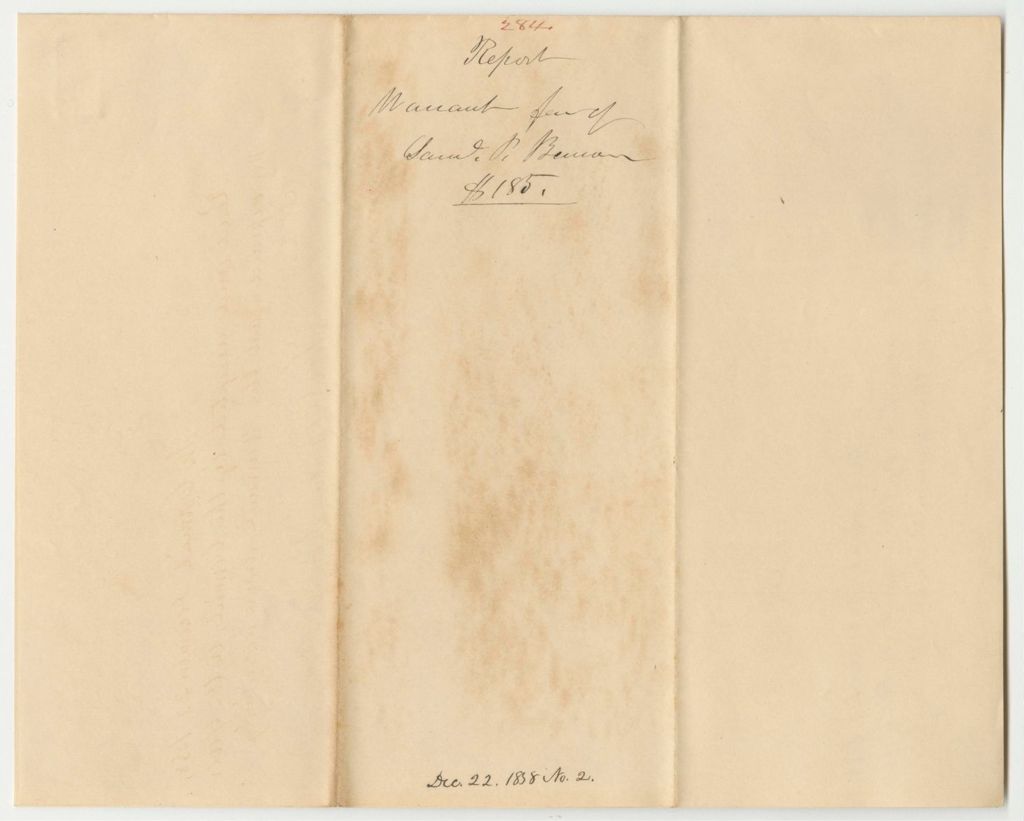 284
Report
Warrant fav of
Saml. P. Benson
$185.
Dec. 22. 1838 No. 2.